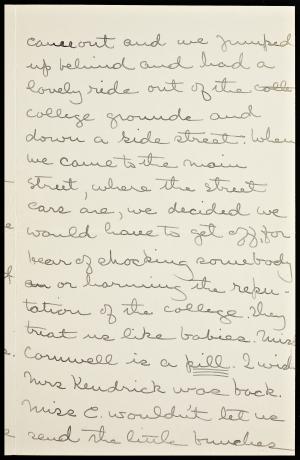 came out and we jumped
up behind and had a
lovely ride out of the colle
college grounds and
down a side street. When
we came to the main
street, where the street
cars are, we decided we
would have to get off, for
fear of shocking somebody
an or harming the repu-
tation of the college. They
treat us like babies. Miss
Cornwell is a pill. I wish
Mrs Kendrick was back.
Miss C. wouldn't let us
send the little bunches